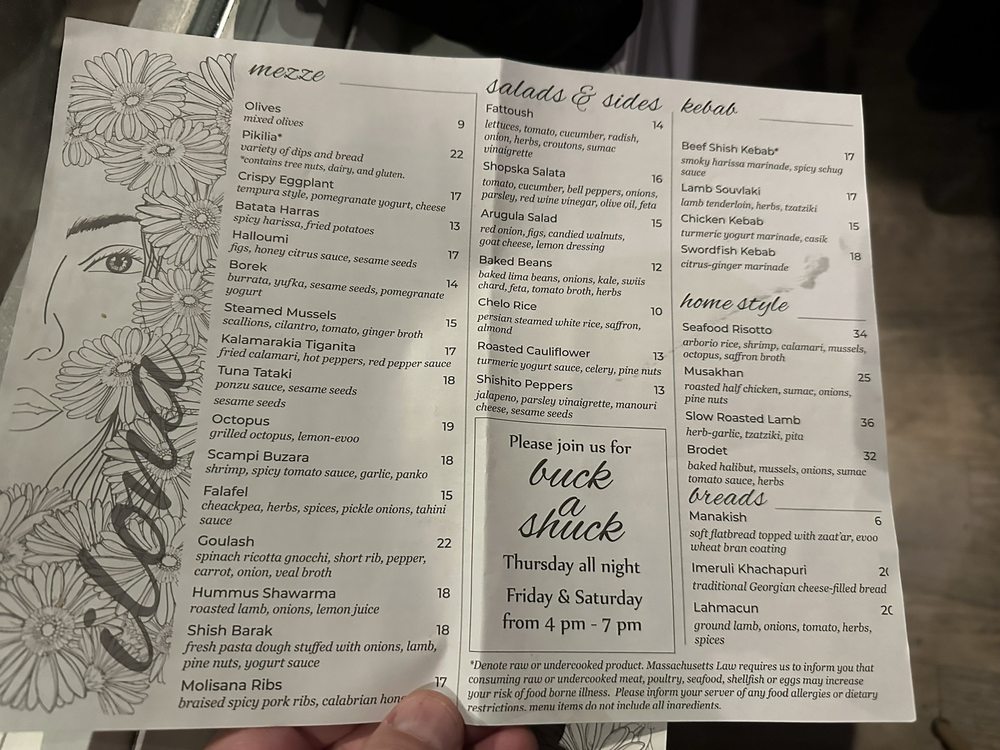 ilona
mezze
Olives
mixed olives 9
Pikilia*
variety of dips and bread 22
*contains tree nuts, dairy, and gluten.
Crispy Eggplant
tempura style, pomegranate yogurt, cheese 17
Batata Harras
spicy harissa, fried potatoes 13
Halloumi
figs, honey citrus sauce, sesame seeds 17
Borek
burrata, yufka, sesame seeds, pomegranate 14
yogurt
Steamed Mussels
scallions, cilantro, tomato, ginger broth 15
Kalamarakia Tiganita 17
fried calamari, hot peppers, red pepper sauce
Tuna Tataki 18
ponzu sauce, sesame seeds
sesame seeds
Octopus 19
grilled octopus, lemon-evoo
Scampi Buzara 18
shrimp, spicy tomato sauce, garlic, panko
Falafel 15
cheackpea, herbs, spices, pickle onions, tahini
sauce
Goulash 22
spinach ricotta gnocchi, short rib, pepper,
carrot, onion, veal broth
Hummus Shawarma 18
roasted lamb, onions, lemon juice
Shish Barak 18
fresh pasta dough stuffed with onions, lamb,
pine nuts, yogurt sauce
Molisana Ribs 17
braised spicy pork ribs, calabrian
salads & sides
Fattoush 14
lettuces, tomato, cucumber, radish,
onion, herbs, croutons, sumac
vinaigrette
Shopska Salata 16
tomato, cucumber, bell peppers, onions,
parsley, red wine vinegar, olive oil, feta
Arugula Salad 15
red onion, figs, candied walnuts,
goat cheese, lemon dressing
Baked Beans 12
baked lima beans, onions, kale, swiis
chard, feta, tomato broth, herbs
Chelo Rice 10
persian steamed white rice, saffron,
almond
Roasted Cauliflower 13
turmeric yogurt sauce, celery, pine nuts
Shishito Peppers 13
jalapeno, parsley vinaigrette, manouri
cheese, sesame seeds
Please join us for
buck
a
shuck
Thursday all night
Friday & Saturday
from 4 pm - 7 pm
kebab
Beef Shish Kebab* 17
smoky harissa marinade, spicy schug
sauce
Lamb Souvlaki 17
lamb tenderloin, herbs, tzatziki
Chicken Kebab 15
turmeric yogurt marinade, casik
Swordfish Kebab 18
citrus-ginger marinade
home style
Seafood Risotto 34
arborio rice, shrimp, calamari, mussels,
octopus, saffron broth
Musakhan 25
roasted half chicken, sumac, onions,
pine nuts
Slow Roasted Lamb 36
herb-garlic, tzatziki, pita
Brodet 32
baked halibut, mussels, onions, sumac
tomato sauce, herbs
breads
Manakish 6
soft flatbread topped with zaat'ar, evoo
wheat bran coating
Imeruli Khachapuri
traditional Georgian cheese-filled bread
Lahmacun
ground lamb, onions, tomato, herbs,
spices
*Denote raw or undercooked product. Massachusetts Law requires us to inform you that
consuming raw or undercooked meat, poultry, seafood, shellfish or eggs may increase
your risk of food borne illness. Please inform your server of any food allergies or dietary
restrictions. menu items do not include all ingredients.